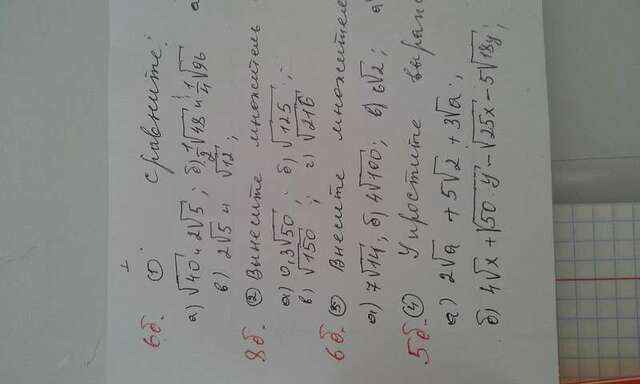 6б. ① Сравните:
а) √40 и 2√5; б) 1/2√48 и 1/4√96
в) 2√5 и √12;
8б. ② Вынесите множитель
а) 0,3√50; б) √125;
в) √150; г) √216
6б. ③ Внесите множители
а) 7√14; б) 4√100; в) 6√2;
5б. ④ Упростите выраж
а) 2√a + 5√2 + 3√a;
б) 4√x + √50y - √25x - 5√18y;